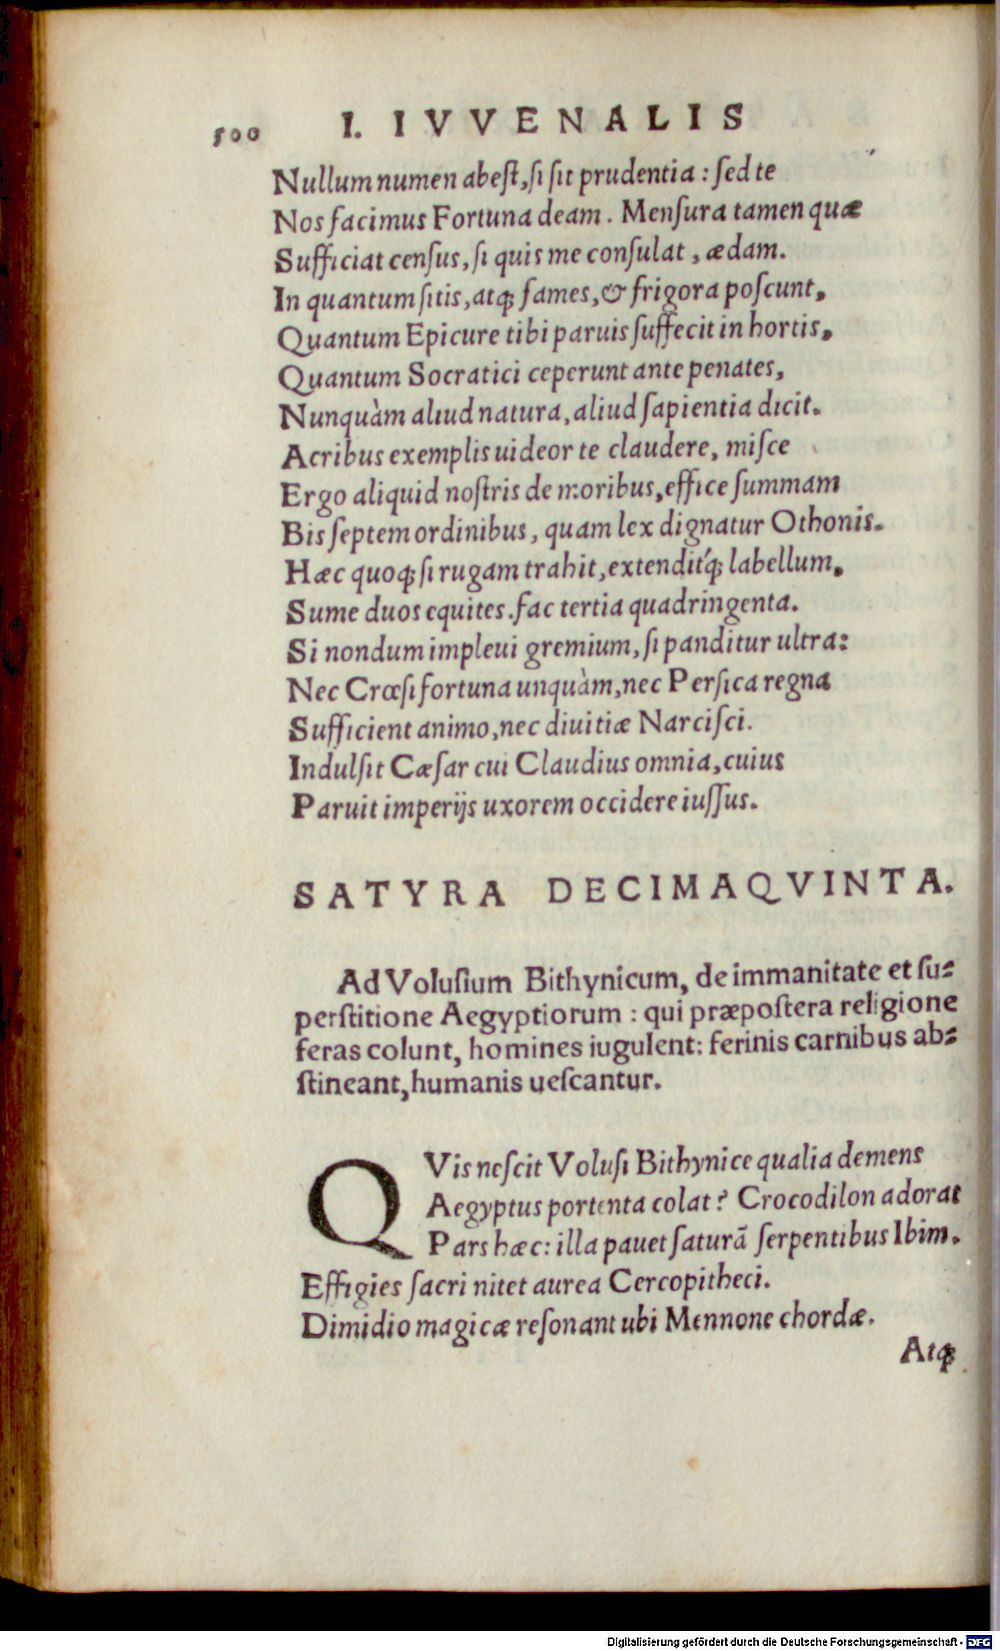 500 I. IVVENALIS
Nullum numen abeſt, ſi ſit prudentia: ſed te
Nos facimus Fortuna deam. Menſura tamen quæ
Sufficiat cenſus, ſi quis me conſulat, ædam.
In quantum ſitis, atq; fames, & frigora poſcunt,
Quantum Epicure tibi paruis ſuffecit in hortis,
Quantum Socratici ceperunt ante penates,
Nunquàm aliud natura, aliud ſapientia dicit.
Acribus exemplis uideor te claudere, miſce
Ergo aliquid noſtris de moribus, effice ſummam
Bis ſeptem ordinibus, quam lex dignatur Othonis.
Hæc quoq; ſi rugam trahit, extendit'q; labellum,
Sume duos equites. fac tertia quadringenta.
Si nondum impleui gremium, ſi panditur ultra:
Nec Crœſi fortuna unquàm, nec Perſica regna
Sufficient animo, nec diuitiæ Narciſci.
Indulſit Cæſar cui Claudius omnia, cuius
Paruit imperijs uxorem occidere iuſſus.
SATYRA DECIMAQVINTA.
Ad Voluſium Bithynicum, de immanitate et ſu⸗
perſtitione Aegyptiorum: qui præpoſtera religione
feras colunt, homines iugulent: ferinis carnibus ab⸗
ſtineant, humanis ueſcantur.
QVis neſcit Voluſi Bithynice qualia demens
Aegyptus portenta colat? Crocodilon adorat
Pars hæc: illa pauet ſaturā ſerpentibus Ibim.
Effigies ſacri nitet aurea Cercopitheci.
Dimidio magicæ reſonant ubi Mennone chordæ.
Atq;
Digitalisierung gefördert durch die Deutsche Forschungsgemeinschaft - DFG